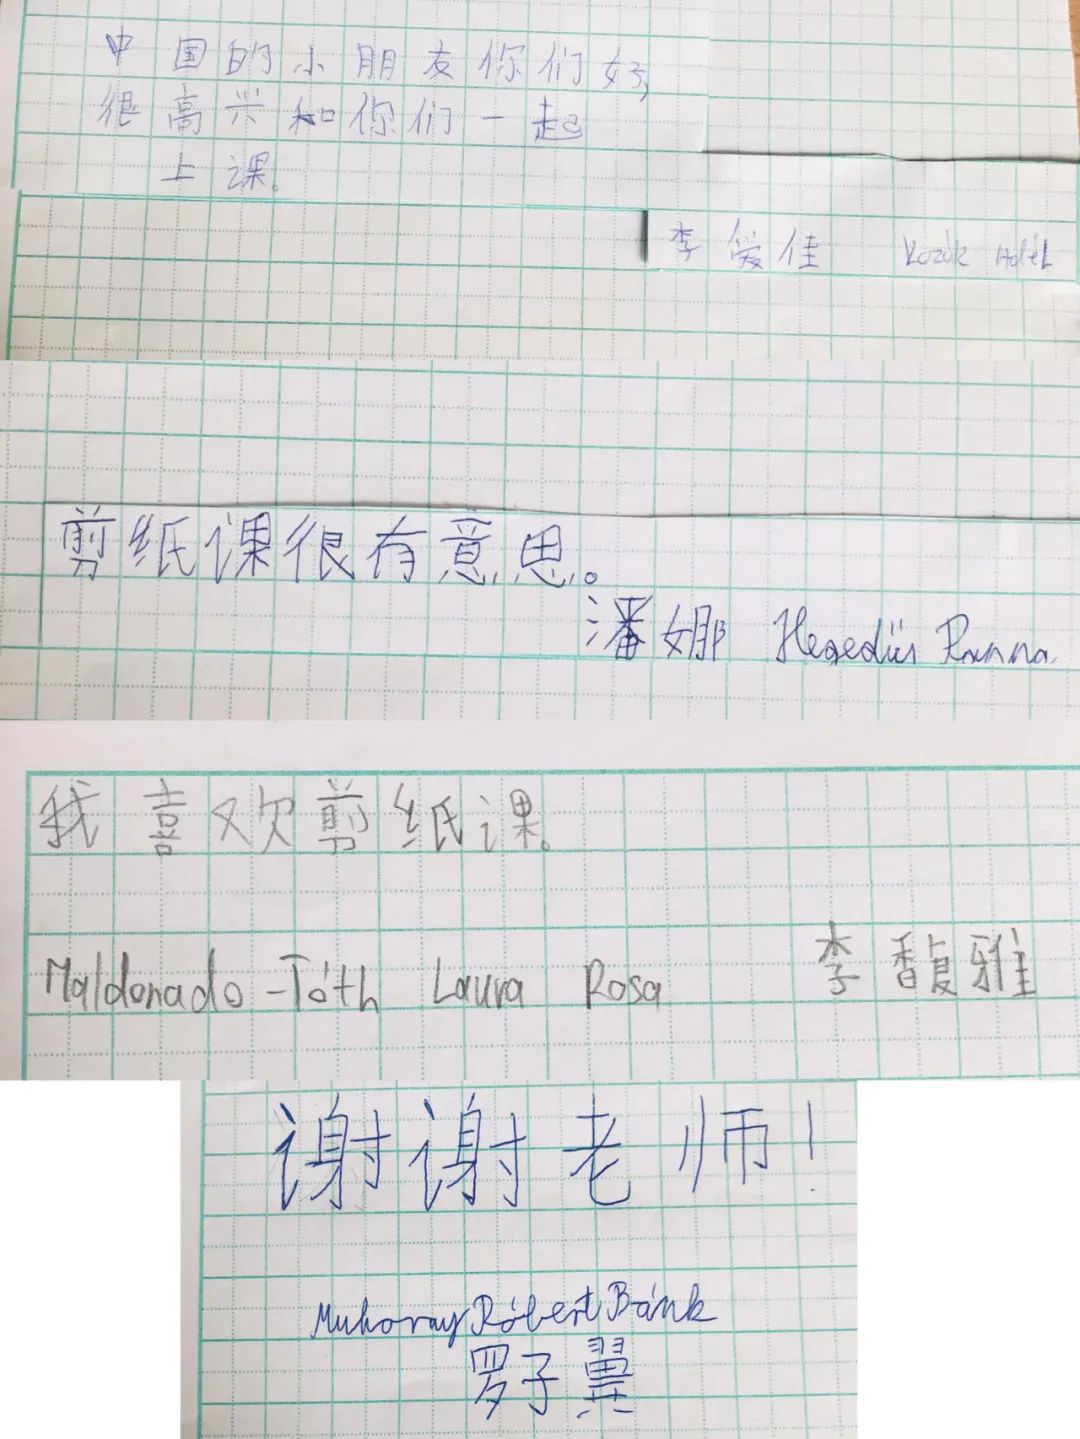 中国的小朋友你们好,
很高兴和你们一起
上课。
李爱佳 Kozák Adél
剪纸课很有意思。
潘娜 Hegedüs Panna.
我喜欢剪纸课。
Maldonado-Tóth Laura Rosa 李馥雅
谢谢老师!
Muhoray Róbert Bánk
罗子翼